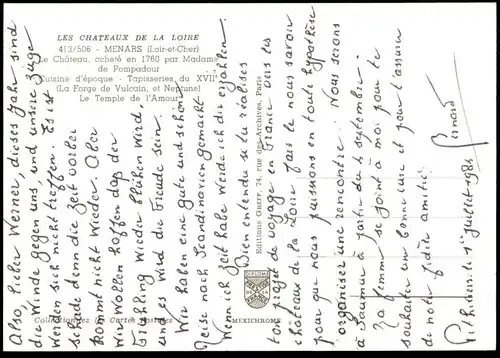 LES CHATEAUX DE LA LOIRE
413/506 - MENARS (Loir-et-Cher)
Le Château, acheté en 1760 par Madame
de Pompadour
Cuisine d'époque - Tapisseries du XVII
(La Forge de Vulcain, et Neptune)
Le Temple de l'Amour
Also, lieber Werner, dieses Jahr sind
die Winde gegen uns und unsere Züge
werden sich nicht treffen. Es ist
schade denn die Zeit vorber
kommt nicht wieder. Aber
wir wollen hoffen das der
Frühling wieder blühen wird
und es wird die Freude sein.
Wir haben eine gute und schöne
Reise nach Scandinavien gemacht
Wenn ich Zeit habe werde ich dir erzählen.
Bien entendu si tu réalises
ton projet de voyage en France dans les
châteaux de la Loire fais le nous savoir
pour que nous puissions en toute hypothèse
organiser une rencontre. Nous serons
à Saumur à partir du 4 septembre.
Ma femme se joint à moi pour te
souhaiter un bonne cure et pour t'assurer
de notre fidèle amitié.
Bernard
le 1er juillet 1984
Editions Greff, 74, rue des Archives, Paris
MEXICHROME
Collectionnez les Cartes Postales